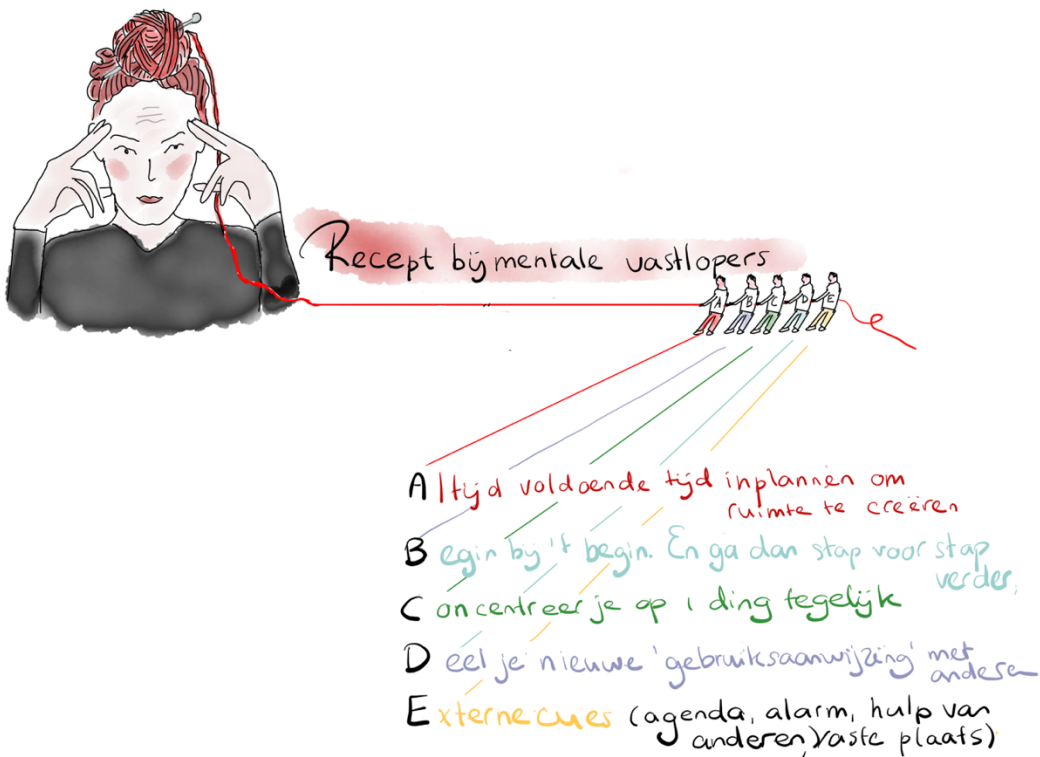 Recept bij mentale vastlopers
A B C D E
Altijd voldoende tijd inplannen om
ruimte te creëren
Begin bij 't begin. En ga dan stap voor stap
verder.
Concentreer je op 1 ding tegelijk
Deel je nieuwe 'gebruiksaanwijzing' met
anderen
Externe cues (agenda, alarm, hulp van
anderen, vaste plaats)